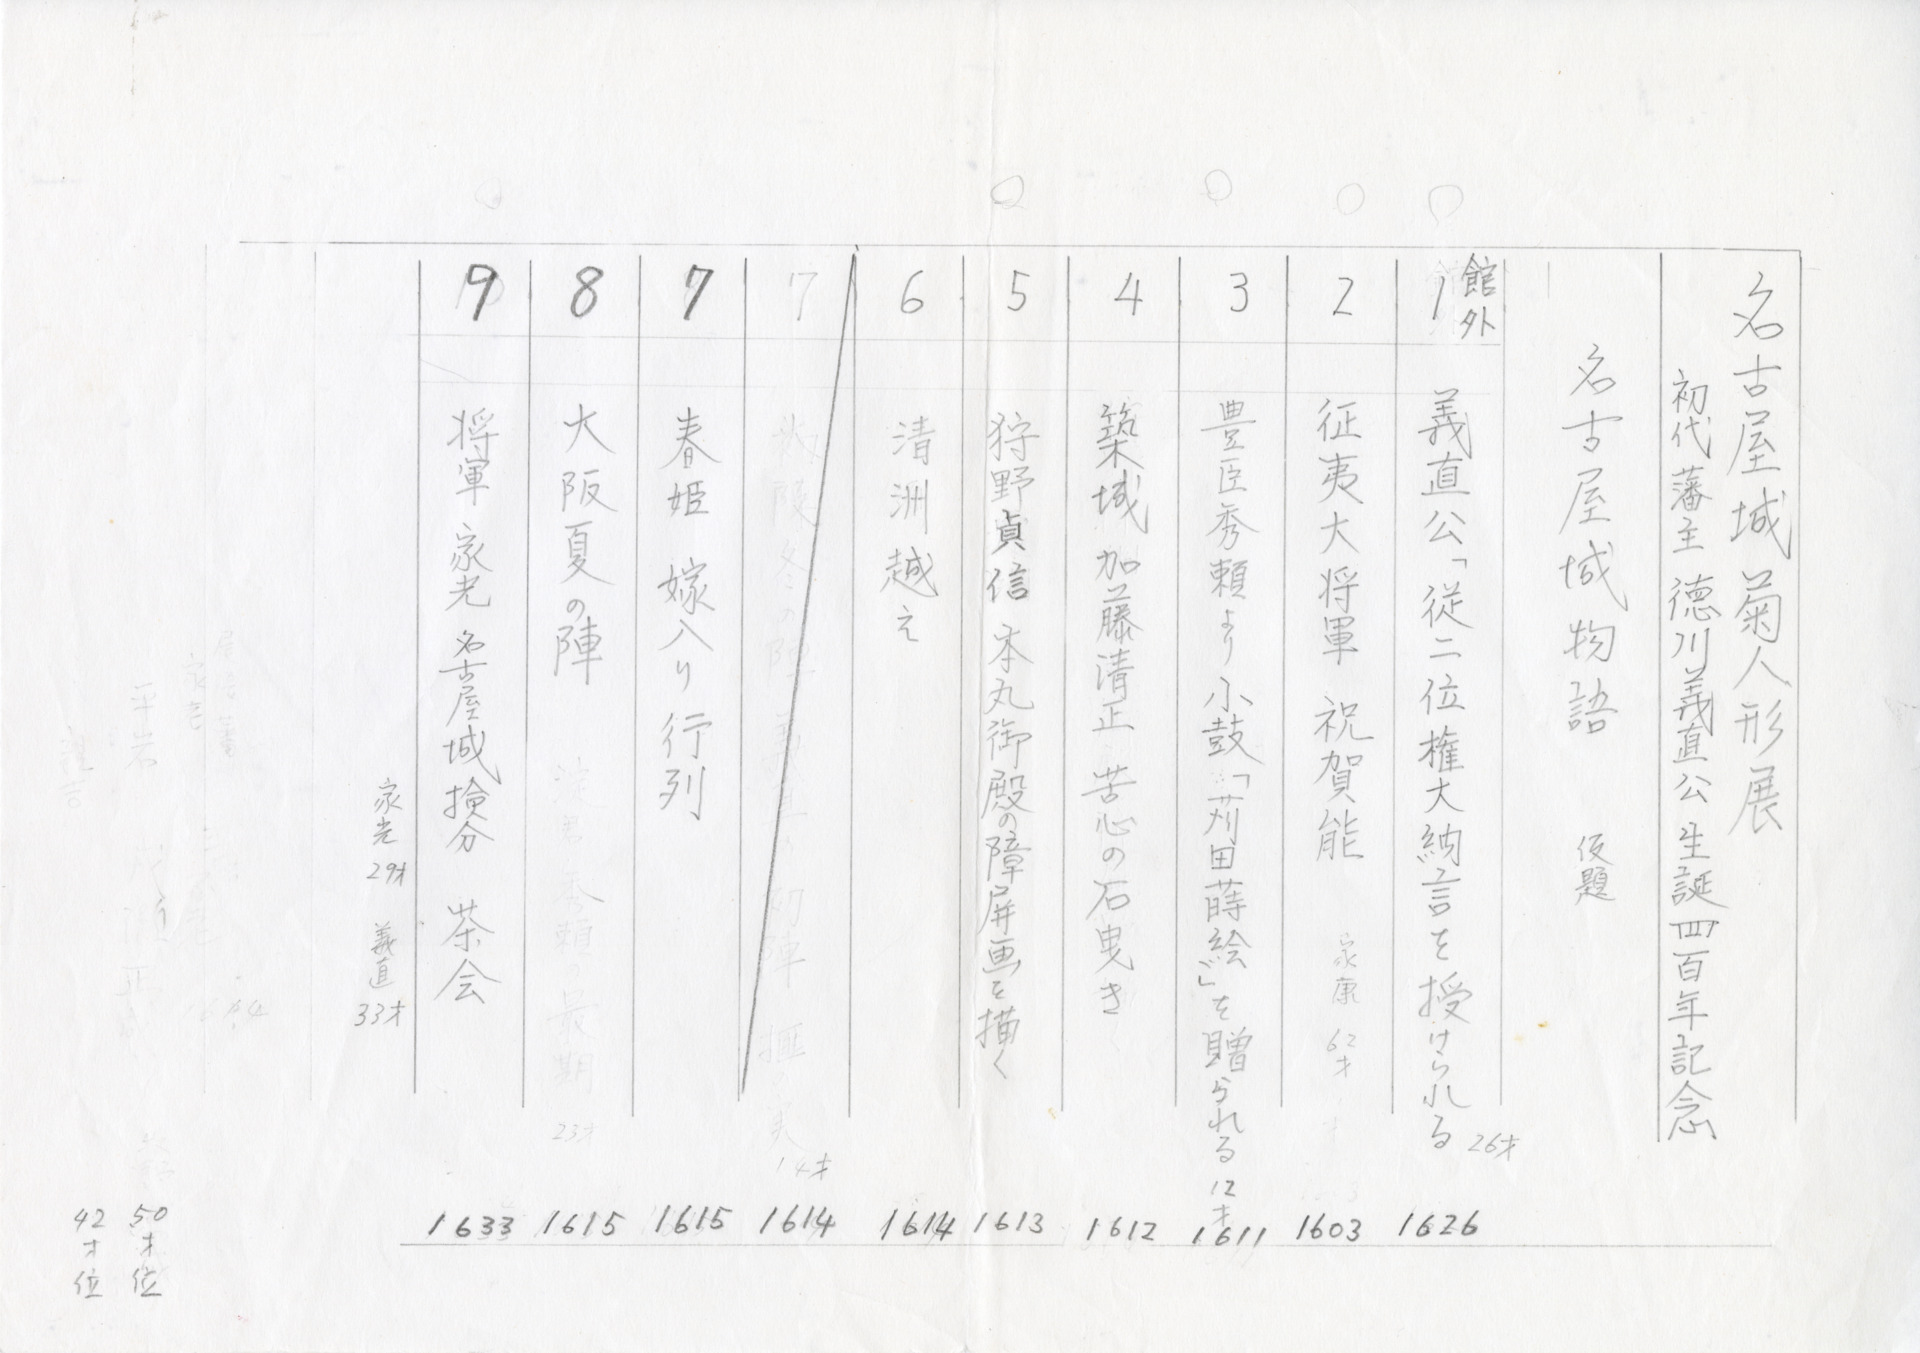 名古屋城菊人形展
初代藩主 徳川義直公生誕四百年記念
名古屋城物語 仮題
館外
1 義直公「従二位権大納言を授けられる 26才 1626
2 征夷大将軍 祝賀能 家康 62才 1603
3 豊臣秀頼より小鼓「苅田蒔絵」を贈られる 12才 1611
4 築城 加藤清正 苦心の石曳き 1612
5 狩野貞信 本丸御殿の障屏画を描く 1613
6 清洲越え 1614
7 大阪冬の陣 義直の初陣 14才 1614
7 春姫 嫁入り行列 1615
8 大阪夏の陣 淀君 秀頼 最期 23才 1615
9 将軍 家光 名古屋城検分 茶会 1633
家光 29才 義直 33才
家老
1614
平岩
50才位
42才位